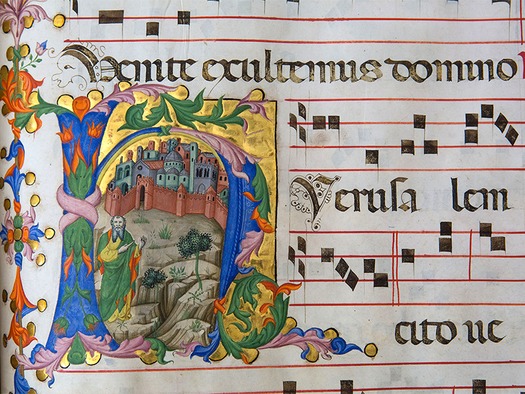 Venite exultemus domino
hYerusa lem
cito ue